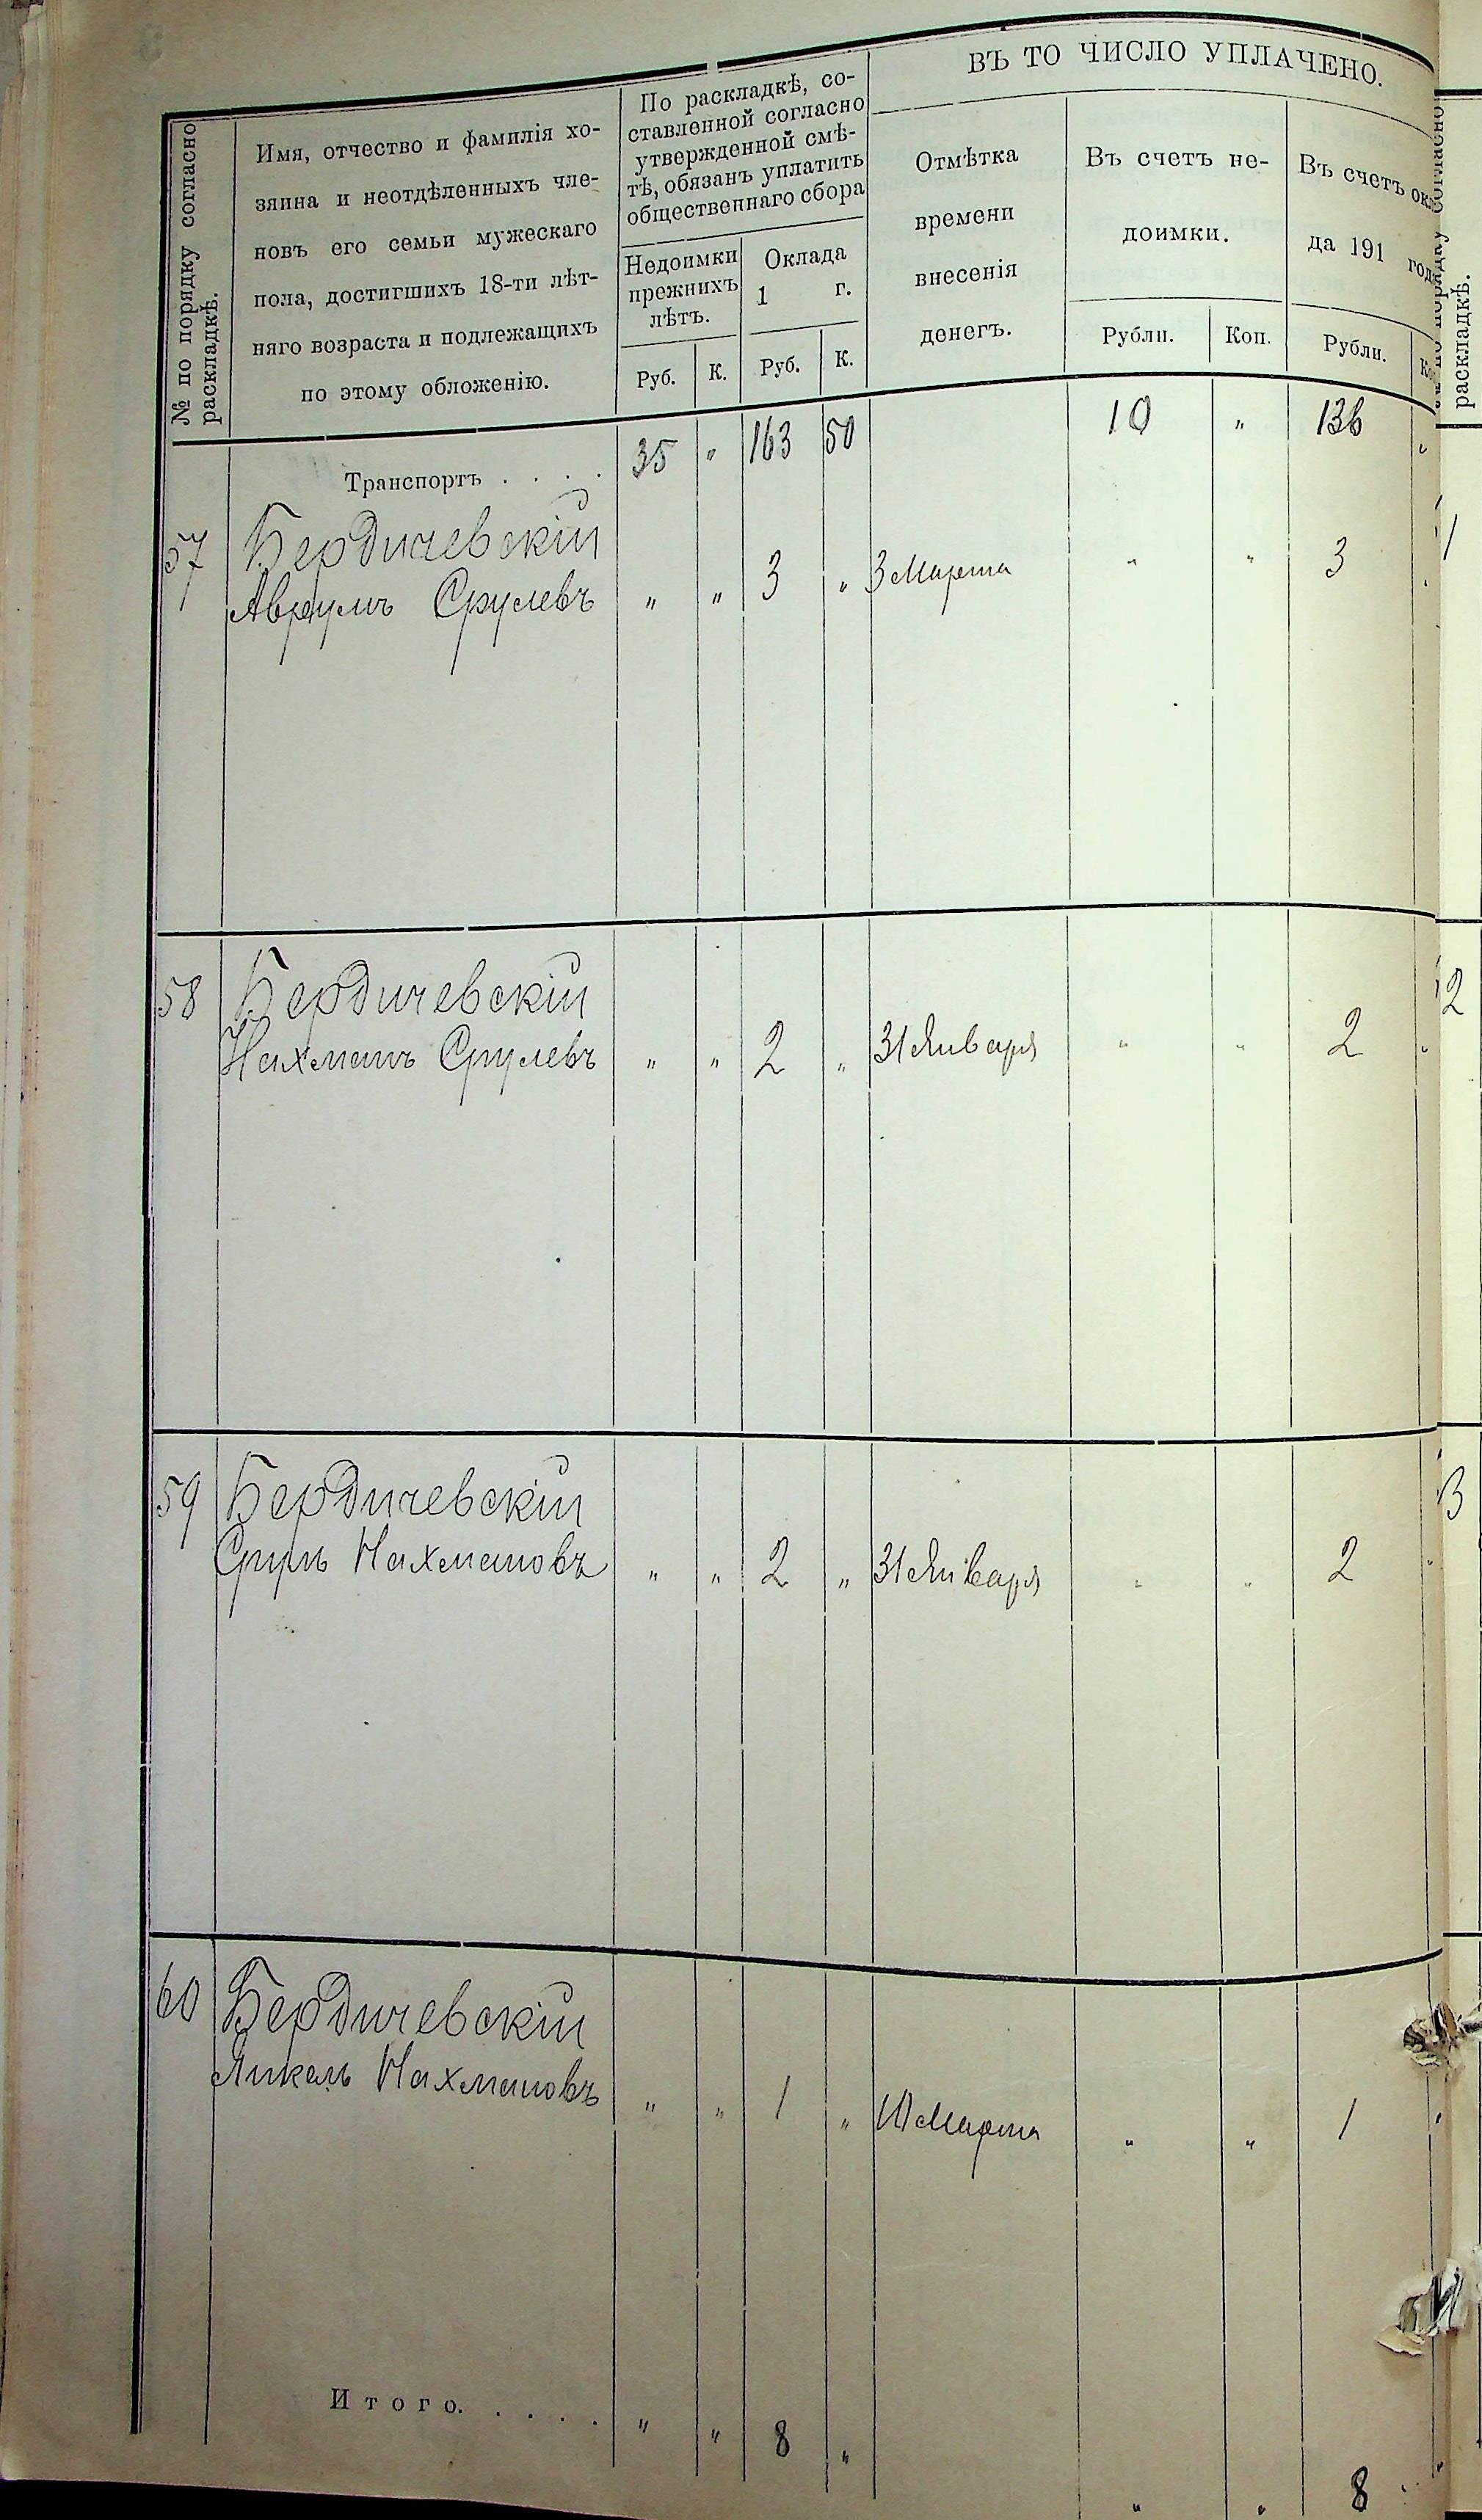 ВЪ ТО ЧИСЛО УПЛАЧЕНО.
№ по порядку согласно
раскладкѣ.
Имя, отчество и фамилія хо-
зяина и неотдѣленныхъ чле-
новъ его семьи мужескаго
пола, достигшихъ 18-ти лѣт-
няго возраста и подлежащихъ
по этому обложенію.
По раскладкѣ, со-
ставленной согласно
утвержденной смѣ-
тѣ, обязанъ уплатить
общественнаго сбора
Недоимки
прежнихъ
лѣтъ.
Оклада
1 г.
Руб. К. Руб. К.
Отмѣтка
времени
внесенія
денегъ.
Въ счетъ не-
доимки.
Рубли. Коп.
Въ счетъ окла
да 191 года
Рубли. Ко
Транспортъ . . . . 35 " 163 50 10 " 136 "
57 Бердичевскій
Авраумъ Срулевъ " " 3 " 3 Марта " " 3 "
58 Бердичевскій
Нахманъ Срулевъ " " 2 " 31 Января " " 2 "
59 Бердичевскій
Сруль Нахмановъ " " 2 " 31 Января " " 2 "
60 Бердичевскій
Янкель Нахмановъ " " 1 " 10 Марта " " 1 "
Итого. . . . . " " 8 " " " 8 "
раскладкѣ.